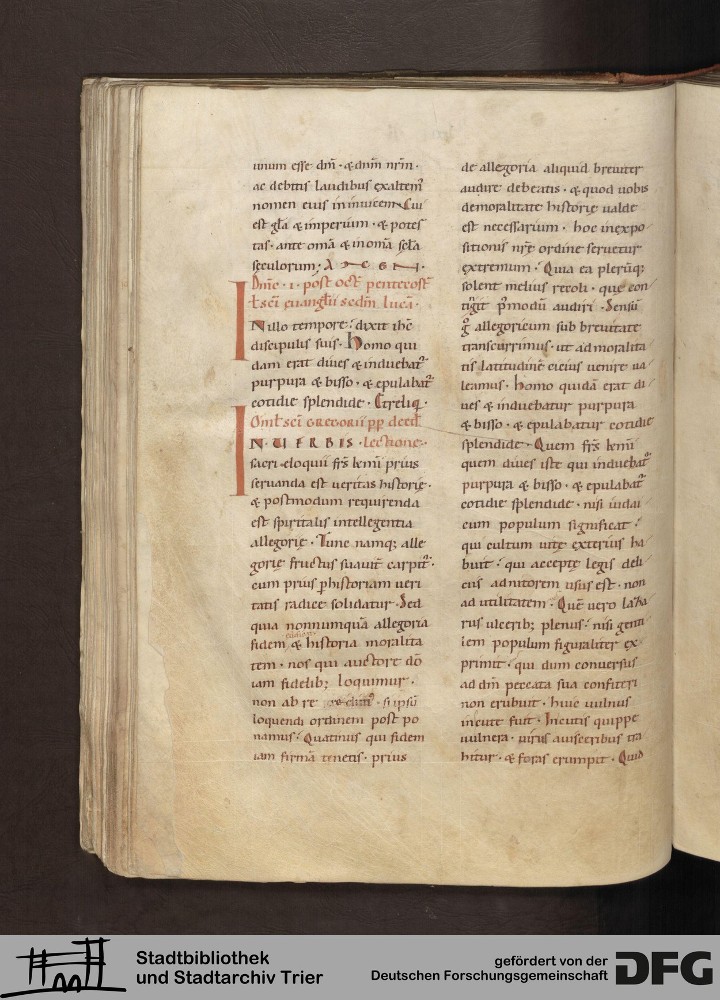 unum esse dm̄ · & dnm̄ nr̄m ·
ac debitis laudibus exaltem᷒
nomen eius in inuicem Cui
est gl̄a & imperium · & potes
tas · ante om̄a & in om̄a scl̄a
sęculorum · A M E N ·
Dm̄c · i · post oct̄ pentecost̄
sc̄i euangl̄ii scdm̄ lucā ·
IN illo tempore · dixit ih̄c
discipulis suis · Homo qui
dam erat diues & induebat᷒
purpura & bisso · & epulabat᷒
cotidie splendide · Et reliq̄ ·
Oml̄ sc̄i GREGORII pp̄ de ead̄
IN UERBIS · lectione ·
sacri eloquii fr̄s kar̄mi prius
seruanda est ueritas historię ·
& postmodum requirenda
est spiritalis intellegentia
allegorię · Tunc namq; alle
gorię fructus suauit̄ carpit᷒ ·
cum prius p̱ historiam ueri
tatis radice solidatur · Sed
quia nonnumquā allegoria
fidem & historia moralita
tem · nos qui auctore dō
iam fidelib; loquimur ·
non ab re si ipsū
loquendi ordinem post po
namus · Quatinus qui fidem
iam firmā tenetis · prius
de allegoria aliquid breuiter
audire debeatis · & quod uobis
de moralitate historię ualde
est necessarium · hoc in expo
sitionis nr̄ę ordine seruetur
extremum · Quia ea plerūq;
solent melius recoli · quę con
tigit p̄ modū audiri · Sensū
g̊ allegoricum sub breuitate
transcurrimus · ut ad moralita
tis latitudinē citius uenire ua
leamus · Homo quidā erat di
ues & induebatur purpura
& bisso · & epulabatur cotidie
splendide · Quem fr̄s kar̄mi
quem diues iste qui induebat᷒
purpura & bisso · & epulabat᷒
cotidie splendide · nisi iudai
cum populum significat ·
qui cultum uitę exterius ha
buit · qui acceptę legis deli
ciis ad nitorem usus est · non
ad utilitatem · Quē uero laza
rus ulcerib; plenus · nisi genti
lem populum figuraliter ex
primit · qui dum conuersus
ad dm̄ peccata sua confiteri
non erubuit · huic uulnus
in cute fuit · In cutis quippe
uulnera · uirus a uisceribus tra
hitur · & foras erumpit · Quid
Stadtbibliothek
und Stadtarchiv Trier
gefördert von der
Deutschen Forschungsgemeinschaft
DFG